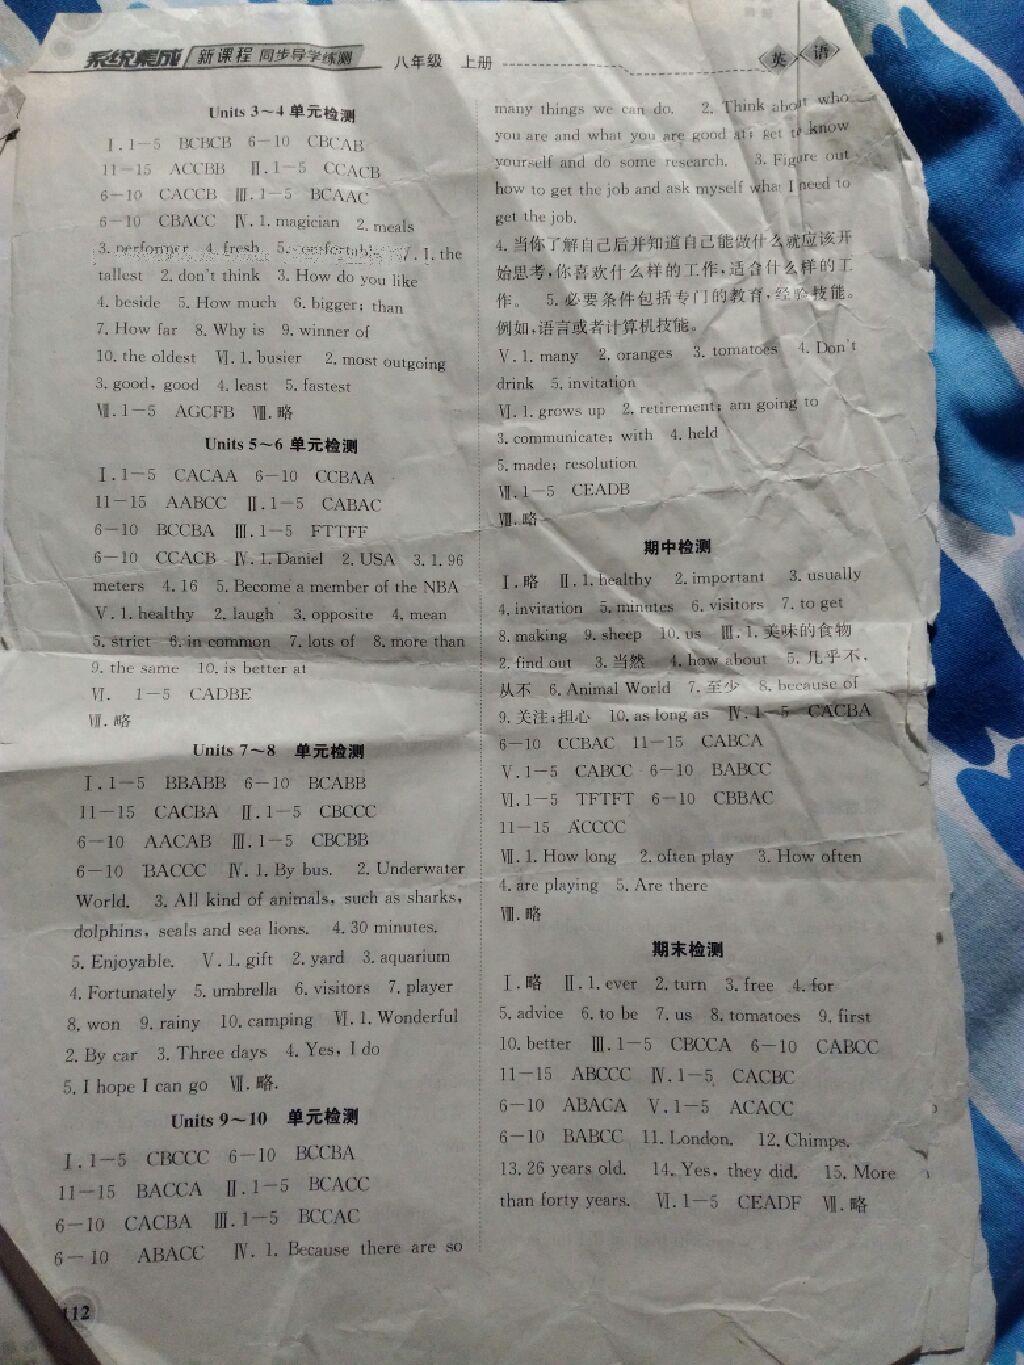 系统集成 新课程 同步导学练测 八年级 上册 英 语
Units 3～4 单元检测
Ⅰ. 1－5 BCBCB 6－10 CBCAB
11－15 ACCBB Ⅱ. 1－5 CCACB
6－10 CACCB Ⅲ. 1－5 BCAAC
6－10 CBACC Ⅳ. 1. magician 2. meals
3. performer 4. fresh 5. comfortable Ⅴ. 1. the
tallest 2. don't think 3. How do you like
4. beside 5. How much 6. bigger; than
7. How far 8. Why is 9. winner of
10. the oldest Ⅵ. 1. busier 2. most outgoing
3. good, good 4. least 5. fastest
Ⅶ. 1－5 AGCFB Ⅷ. 略
Units 5～6 单元检测
Ⅰ. 1－5 CACAA 6－10 CCBAA
11－15 AABCC Ⅱ. 1－5 CABAC
6－10 BCCBA Ⅲ. 1－5 FTTFF
6－10 CCACB Ⅳ. 1. Daniel 2. USA 3. 1. 96
meters 4. 16 5. Become a member of the NBA
Ⅴ. 1. healthy 2. laugh 3. opposite 4. mean
5. strict 6. in common 7. lots of 8. more than
9. the same 10. is better at
Ⅵ. 1－5 CADBE
Ⅶ. 略
Units 7～8 单元检测
Ⅰ. 1－5 BBABB 6－10 BCABB
11－15 CACBA Ⅱ. 1－5 CBCCC
6－10 AACAB Ⅲ. 1－5 CBCBB
6－10 BACCC Ⅳ. 1. By bus. 2. Underwater
World. 3. All kind of animals, such as sharks,
dolphins, seals and sea lions. 4. 30 minutes.
5. Enjoyable. Ⅴ. 1. gift 2. yard 3. aquarium
4. Fortunately 5. umbrella 6. visitors 7. player
8. won 9. rainy 10. camping Ⅵ. 1. Wonderful
2. By car 3. Three days 4. Yes, I do
5. I hope I can go Ⅶ. 略.
Units 9～10 单元检测
Ⅰ. 1－5 CBCCC 6－10 BCCBA
11－15 BACCA Ⅱ. 1－5 BCACC
6－10 CACBA Ⅲ. 1－5 BCCAC
6－10 ABACC Ⅳ. 1. Because there are so
112
many things we can do. 2. Think about who
you are and what you are good at; get to know
yourself and do some research. 3. Figure out
how to get the job and ask myself what I need to
get the job.
4. 当你了解自己后并知道自己能做什么就应该开
始思考,你喜欢什么样的工作,适合什么样的工
作。 5. 必要条件包括专门的教育,经验技能。
例如,语言或者计算机技能。
Ⅴ. 1. many 2. oranges 3. tomatoes 4. Don't
drink 5. invitation
Ⅵ. 1. grows up 2. retirement; am going to
3. communicate; with 4. held
5. made; resolution
Ⅶ. 1－5 CEADB
Ⅷ. 略
期中检测
Ⅰ. 略 Ⅱ. 1. healthy 2. important 3. usually
4. invitation 5. minutes 6. visitors 7. to get
8. making 9. sheep 10. us Ⅲ. 1. 美味的食物
2. find out 3. 当然 4. how about 5. 几乎不,
从不 6. Animal World 7. 至少 8. because of
9. 关注;担心 10. as long as Ⅳ. 1－5 CACBA
6－10 CCBAC 11－15 CABCA
Ⅴ. 1－5 CABCC 6－10 BABCC
Ⅵ. 1－5 TFTFT 6－10 CBBAC
11－15 ACCCC
Ⅶ. 1. How long 2. often play 3. How often
4. are playing 5. Are there
Ⅷ. 略
期末检测
Ⅰ. 略 Ⅱ. 1. ever 2. turn 3. free 4. for
5. advice 6. to be 7. us 8. tomatoes 9. first
10. better Ⅲ. 1－5 CBCCA 6－10 CABCC
11－15 ABCCC Ⅳ. 1－5 CACBC
6－10 ABACA Ⅴ. 1－5 ACACC
6－10 BABCC 11. London. 12. Chimps.
13. 26 years old. 14. Yes, they did. 15. More
than forty years. Ⅵ. 1－5 CEADF Ⅶ. 略